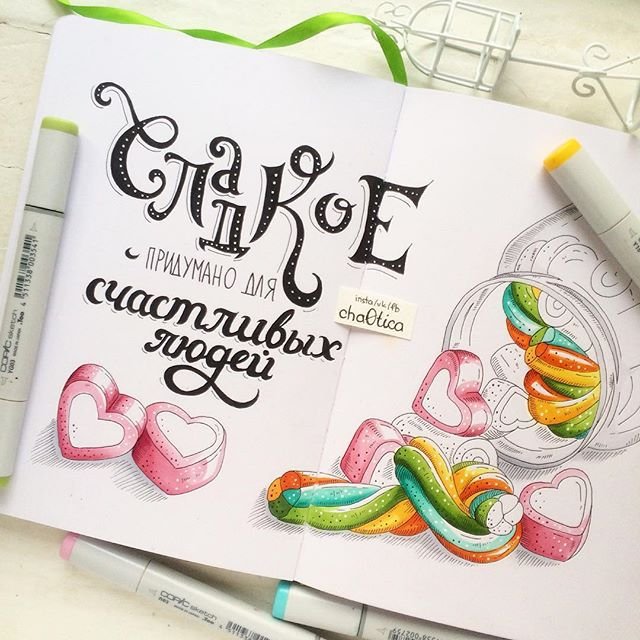 Сладкое
придумано для
счастливых
людей
insta/vk/fb
cha0tica
COPIC sketch
4 511338 003541
COPIC sketch
COPIC sketch